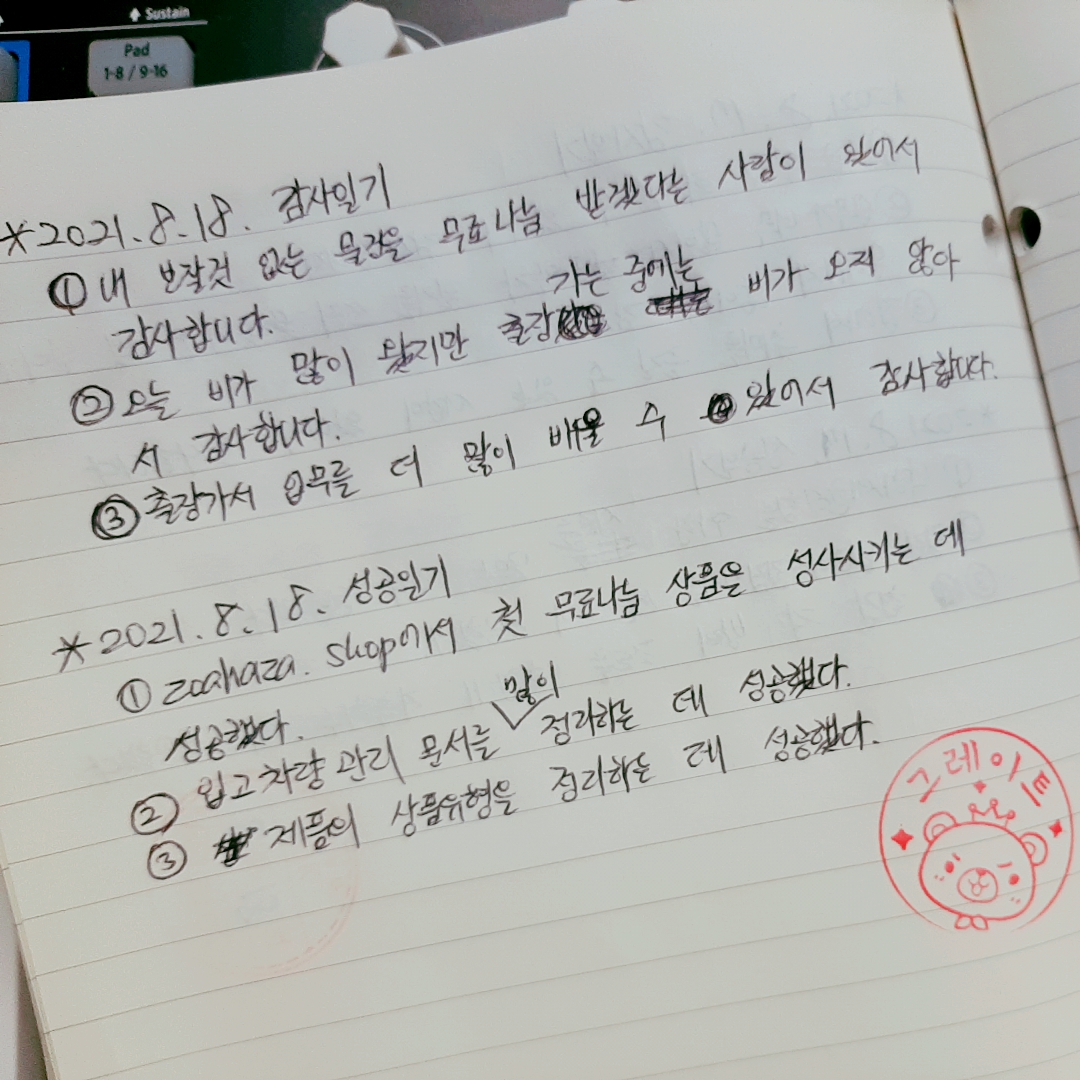 Sustain
Pad
1-8 / 9-16
*2021.8.18. 감사일기
① 내 보잘것 없는 물건을 무료나눔 받겠다는 사람이 있어서
감사합니다.
② 오늘 비가 많이 왔지만 출장 가는 중에는 비가 오지 않아
서 감사합니다.
③ 출장가서 업무를 더 많이 배울 수 있어서 감사합니다.
*2021.8.18. 성공일기
① zoahaza.shop에서 첫 무료나눔 상품을 성사시키는 데
성공했다.
② 입고차량 관리 문서를 많이 정리하는 데 성공했다.
③ 제품의 상품유형을 정리하는 데 성공했다.
그레이트